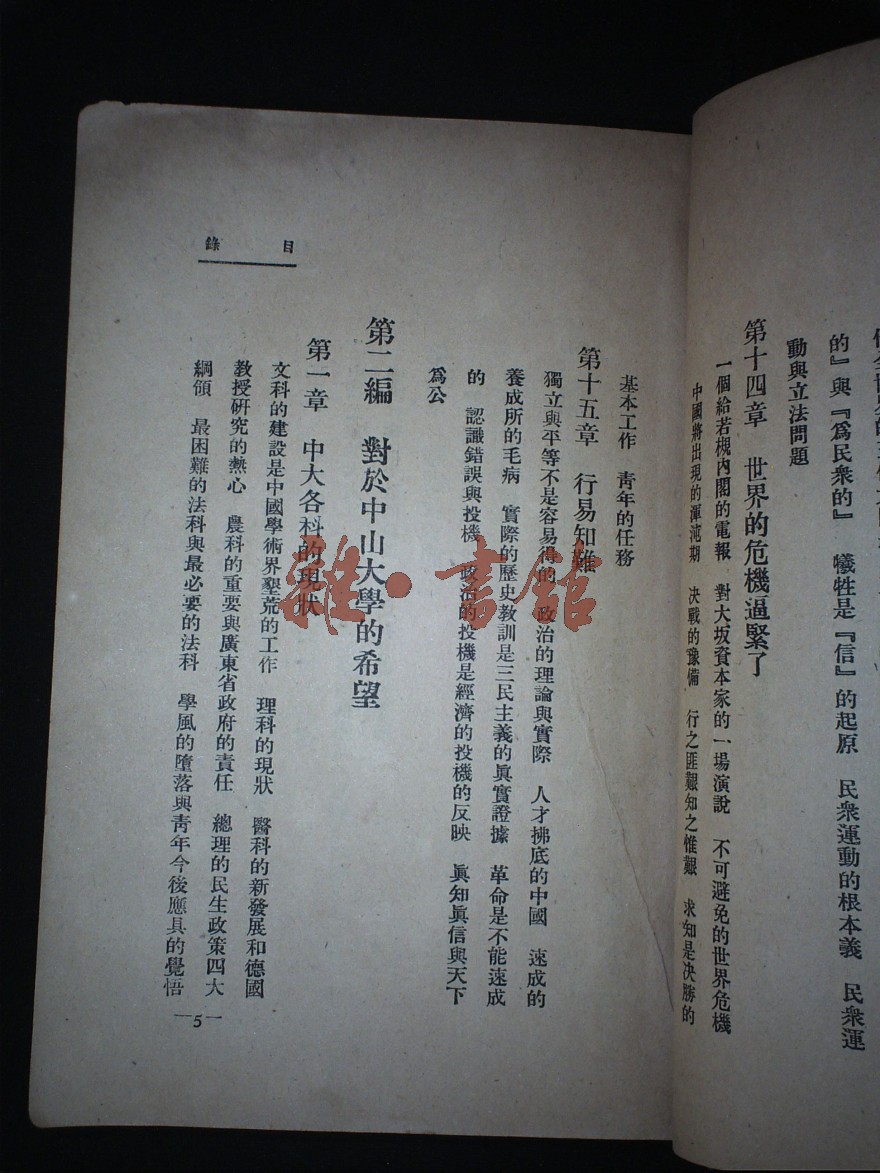 的』與『爲民衆的』 犧牲是『信』的起原 民衆運動的根本義 民衆運
動與立法問題
第十四章 世界的危機逼緊了
一個給若槻內閣的電報 對大坂資本家的一場演說 不可避免的世界危機
中國將出現的渾沌期 決戰的豫備 行之匪艱知之惟艱 求知是決勝的
基本工作 青年的任務
第十五章 行易知難
獨立與平等不是容易得的 政治的理論與實際 人才拂底的中國 速成的
養成所的毛病 實際的歷史教訓是三民主義的眞實證據 革命是不能速成
的 認識錯誤與投機 政治的投機是經濟的投機的反映 眞知眞信與天下
爲公
第二編 對於中山大學的希望
第一章 中大各科的現狀
文科的建設是中國學術界墾荒的工作 理科的現狀 醫科的新發展和德國
教授硏究的熱心 農科的重要與廣東省政府的責任 總理的民生政策四大
綱領 最困難的法科與最必要的法科 學風的墮落與靑年今後應具的覺悟
目錄
—5—
雜·書館